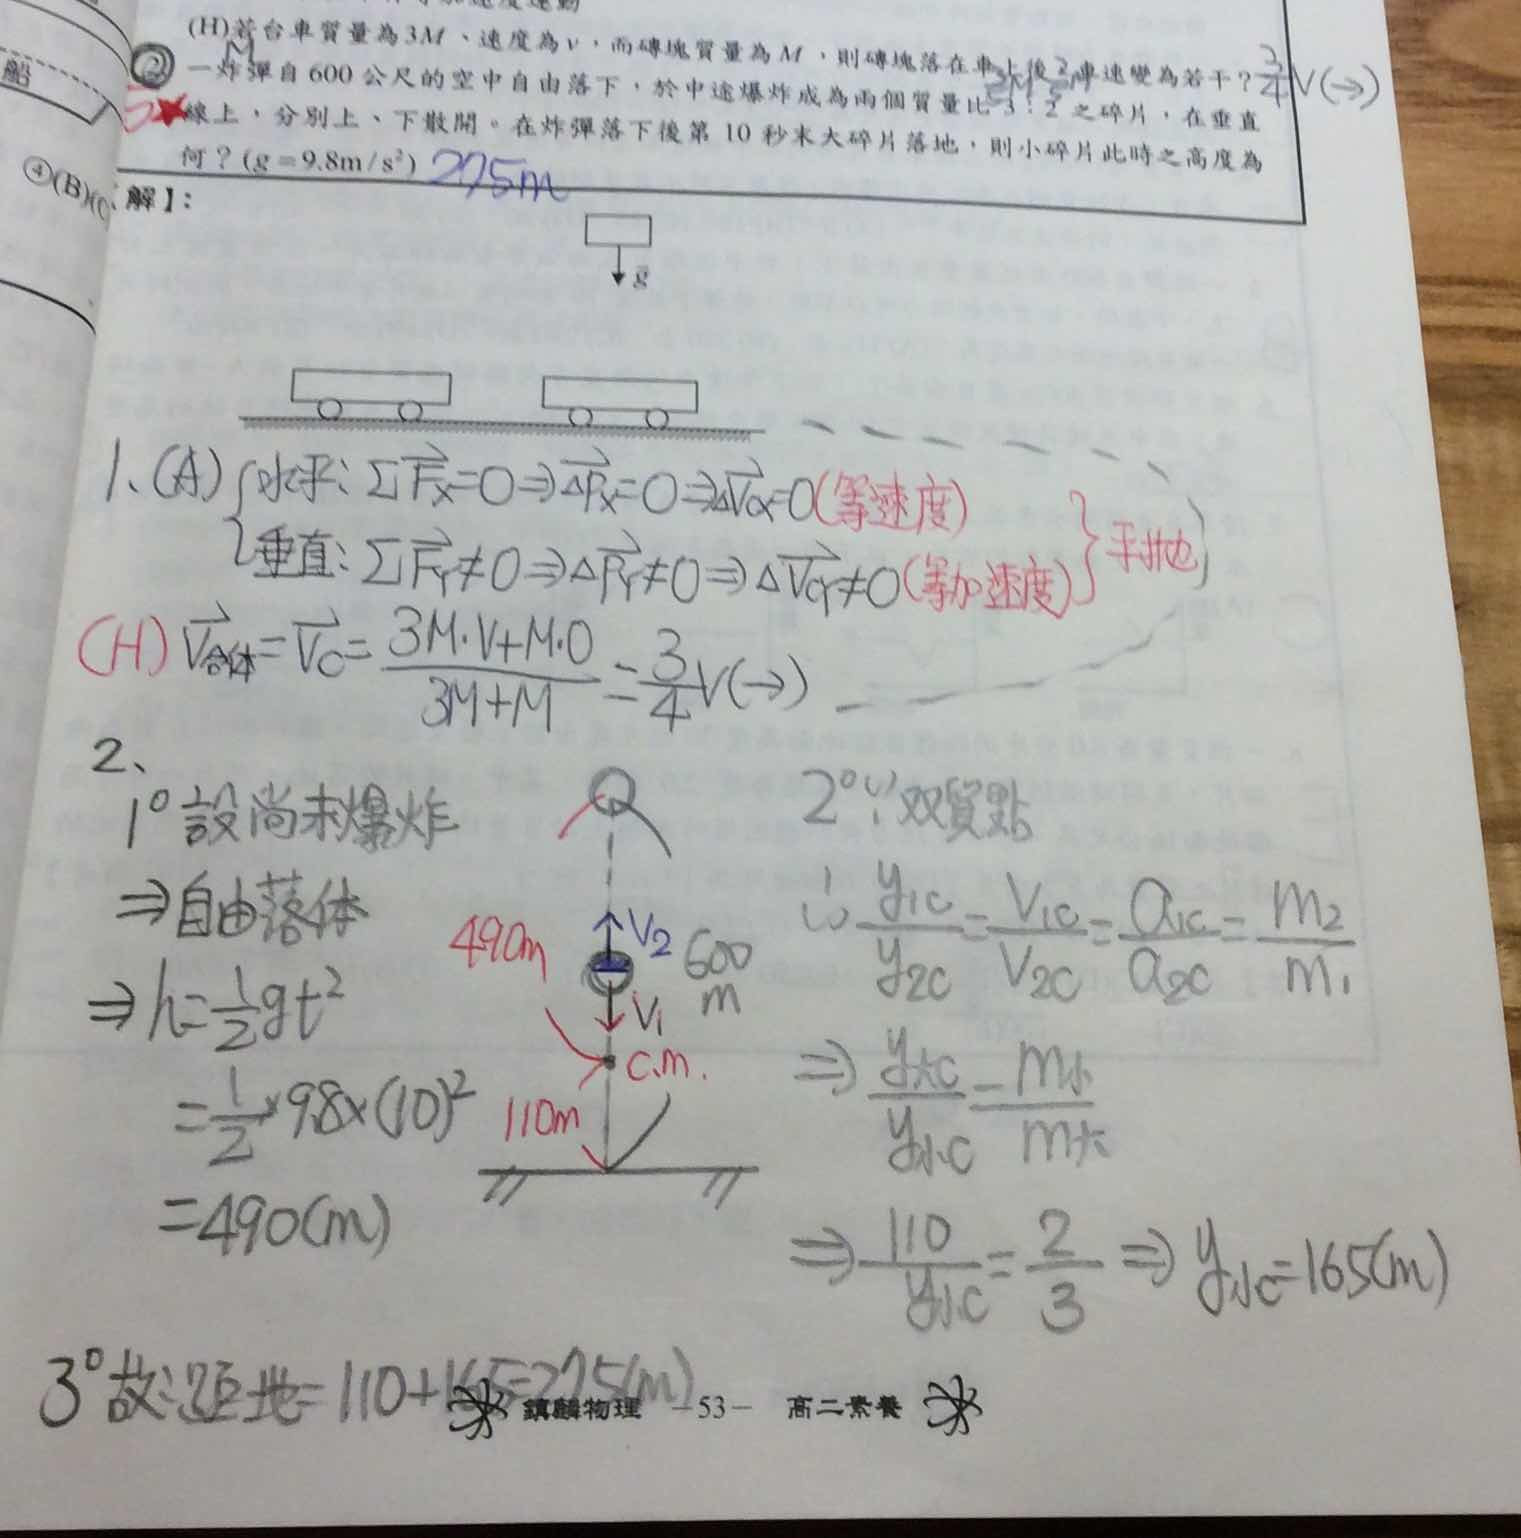 (H)若台車質量為3M、速度為v,而磚塊質量為M,則磚塊落在車上後,車速變為若干? 3/4 V(→)
② 一炸彈自600公尺的空中自由落下,於中途爆炸成為兩個質量比3:2之碎片,在垂直
線上,分別上、下散開。在炸彈落下後第10秒末大碎片落地,則小碎片此時之高度為
何?(g=9.8m/s²) 275m
船
④(B)(C
解】:
g
1、(A) 水平:ΣFx=0⇒ΔPx=0⇒ΔVcx=0(等速度)
垂直:ΣFY≠0⇒ΔPY≠0⇒ΔVcY≠0(等加速度)
平拋
(H) V合体=VC=(3M·V+M·0)/(3M+M)=3/4 V(→)
2、
1° 設尚未爆炸
⇒自由落体
⇒h=1/2 gt²
=1/2×9.8×(10)²
=490(m)
V2
490m
600
m
V1
C.m.
110m
2° ∵双質點
∴ y1c/y2c=V1c/V2c=a1c/a2c=m2/m1
⇒ y大c/y小c=m小/m大
⇒ 110/y小c=2/3 ⇒ y小c=165(m)
3° 故:距地=110+165=275(m)
鎮麟物理 -53- 高二素養